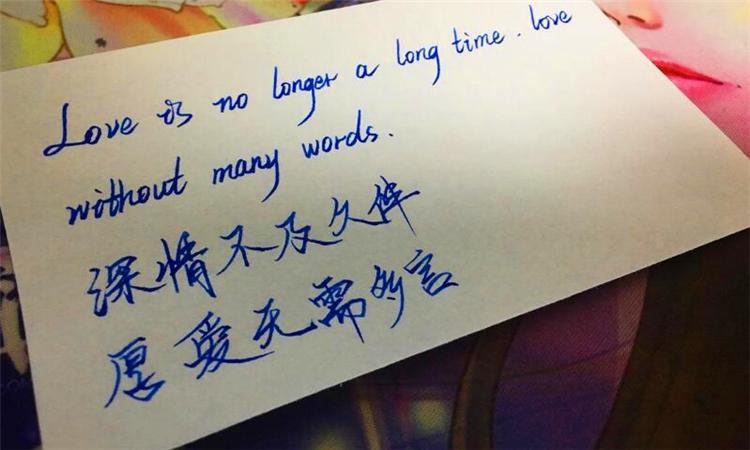 Love is no longer a long time. love
without many words.
深情不及久伴
厚爱无需多言